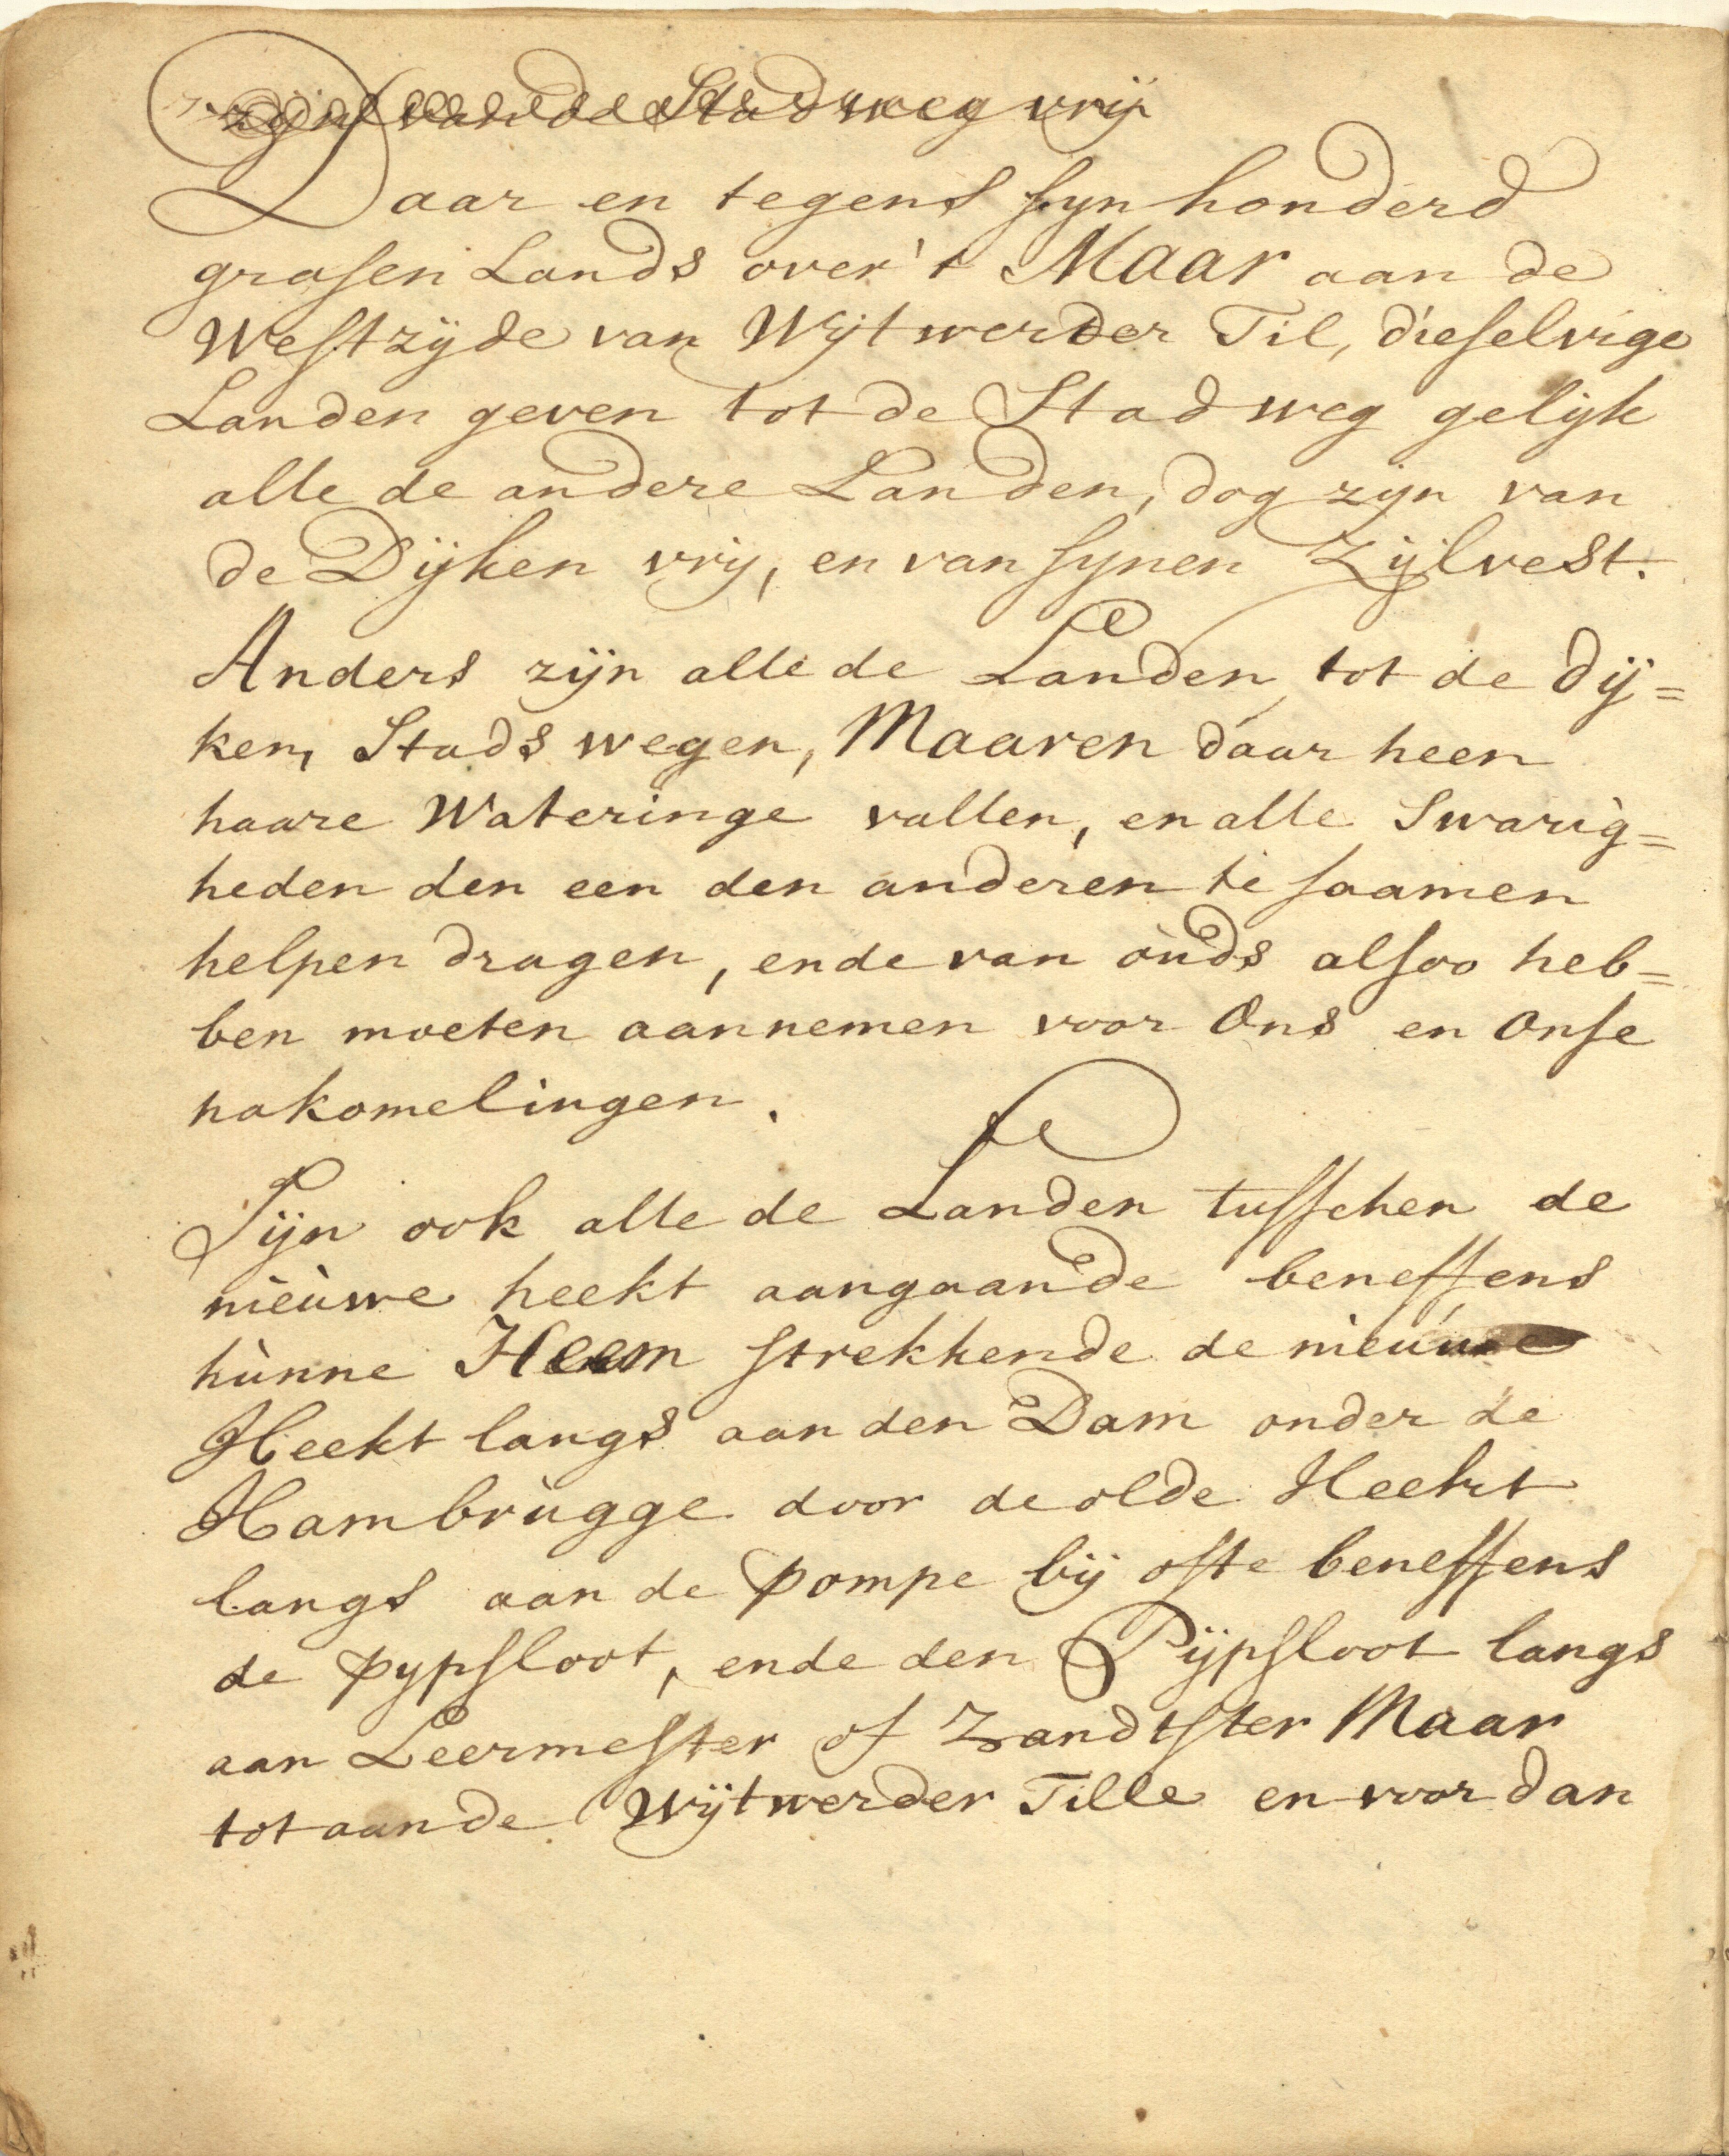 zijn van de Stadsweg vrij
Daar en tegens syn honderd
grasen Lands over't Maar aan de
Westzijde van Wijtwerder Til, dieselvige
Landen geven tot de Stadweg gelijk
alle de andere Landen, dog zijn van
de Dijken vrij, en van synen Zijlvest.
Anders zijn alle de Landen tot de dij=
ken, Stads wegen, Maaren daar heen
haare Wateringe vallen, en alle Swarig=
heden den een den anderen te saamen
helpen dragen, ende van ouds alsoo heb=
ben moeten aannemen voor Ons en Onse
nakomelingen.
Sijn ook alle de Landen tusschen de
nieuwe heekt aangaande beneffens
hunne Heem strekkende de nieuwe
Heekt langs aan den Dam onder de
Hambrugge door de olde Heekt
langs aan de pompe bij ofte beneffens
de pypsloot, ende den Pijpsloot langs
aan Leermester of Zandtster Maar
tot aan de Wijtwerder Tille en voor dan